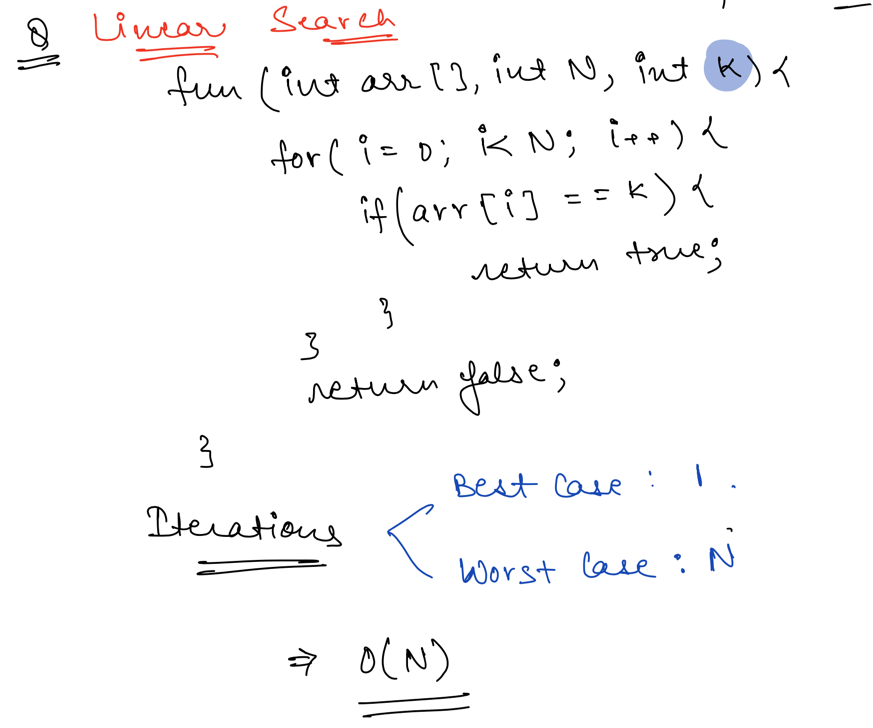 Q Linear Search
fun (int arr[], int N, int K) {
for( i = 0; i < N; i++) {
if(arr[i] == K) {
return true;
}
}
return false;
}
Best Case : 1.
Iterations
Worst Case : N
⇒ O(N)